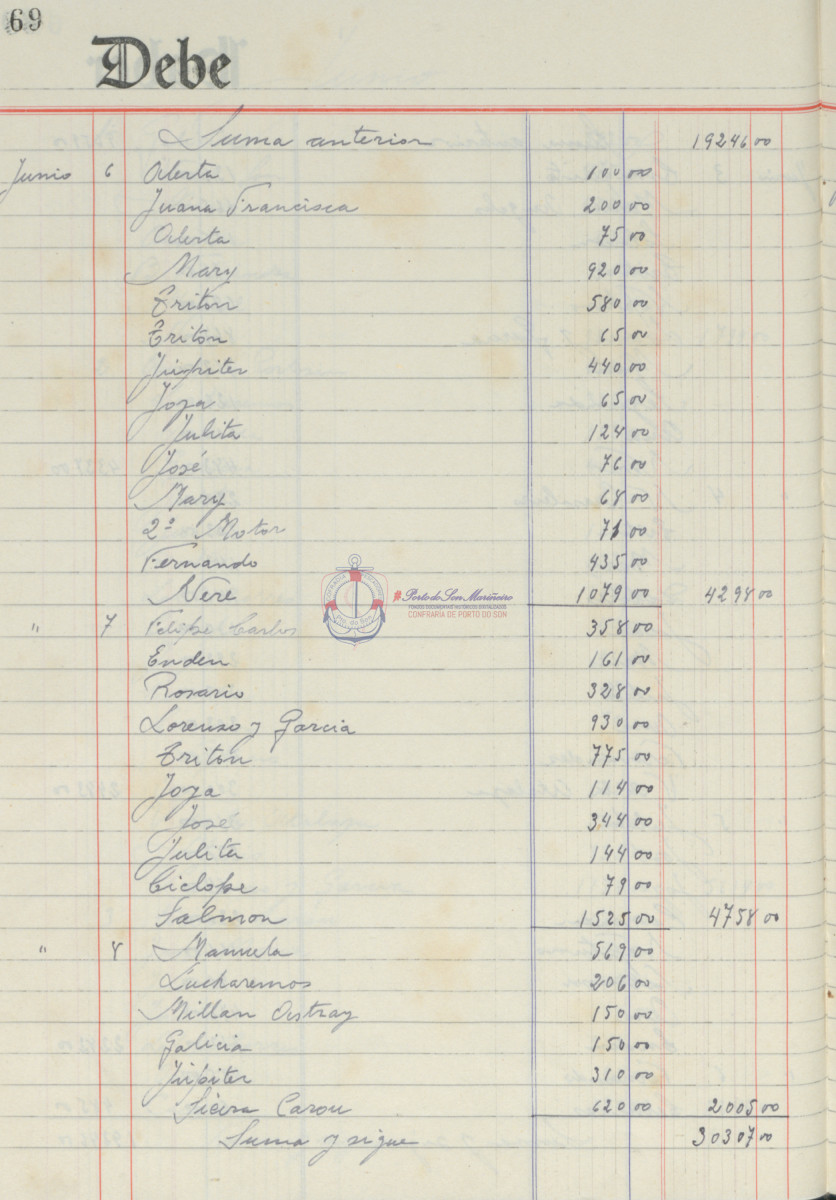 69
Debe
Suma anterior 19246 00
Junio 6 Alerta 100 00
Juana Francisca 200 00
Alerta 75 00
Mary 920 00
Triton 580 00
Triton 65 00
Jupiter 440 00
Joya 65 00
Julita 124 00
José 76 00
Mary 68 00
2º Motor 71 00
Fernando 435 00
Nere 1079 00 4298 00
" 7 Felipe Carlos 358 00
Enden 161 00
Rosario 328 00
Lorenzo y Garcia 930 00
Triton 775 00
Joya 114 00
José 344 00
Julita 144 00
Ciclope 79 00
Salmon 1525 00 4758 00
" 8 Manuela 569 00
Lucharemos 206 00
Millan Astray 150 00
Galicia 150 00
Jupiter 310 00
Sieira Carou 620 00 2005 00
Suma y sigue 30307 00
#Porto do Son Mariñeiro
FONDOS DOCUMENTAIS HISTÓRICOS DIXITALIZADOS
CONFRARIA DE PORTO DO SON